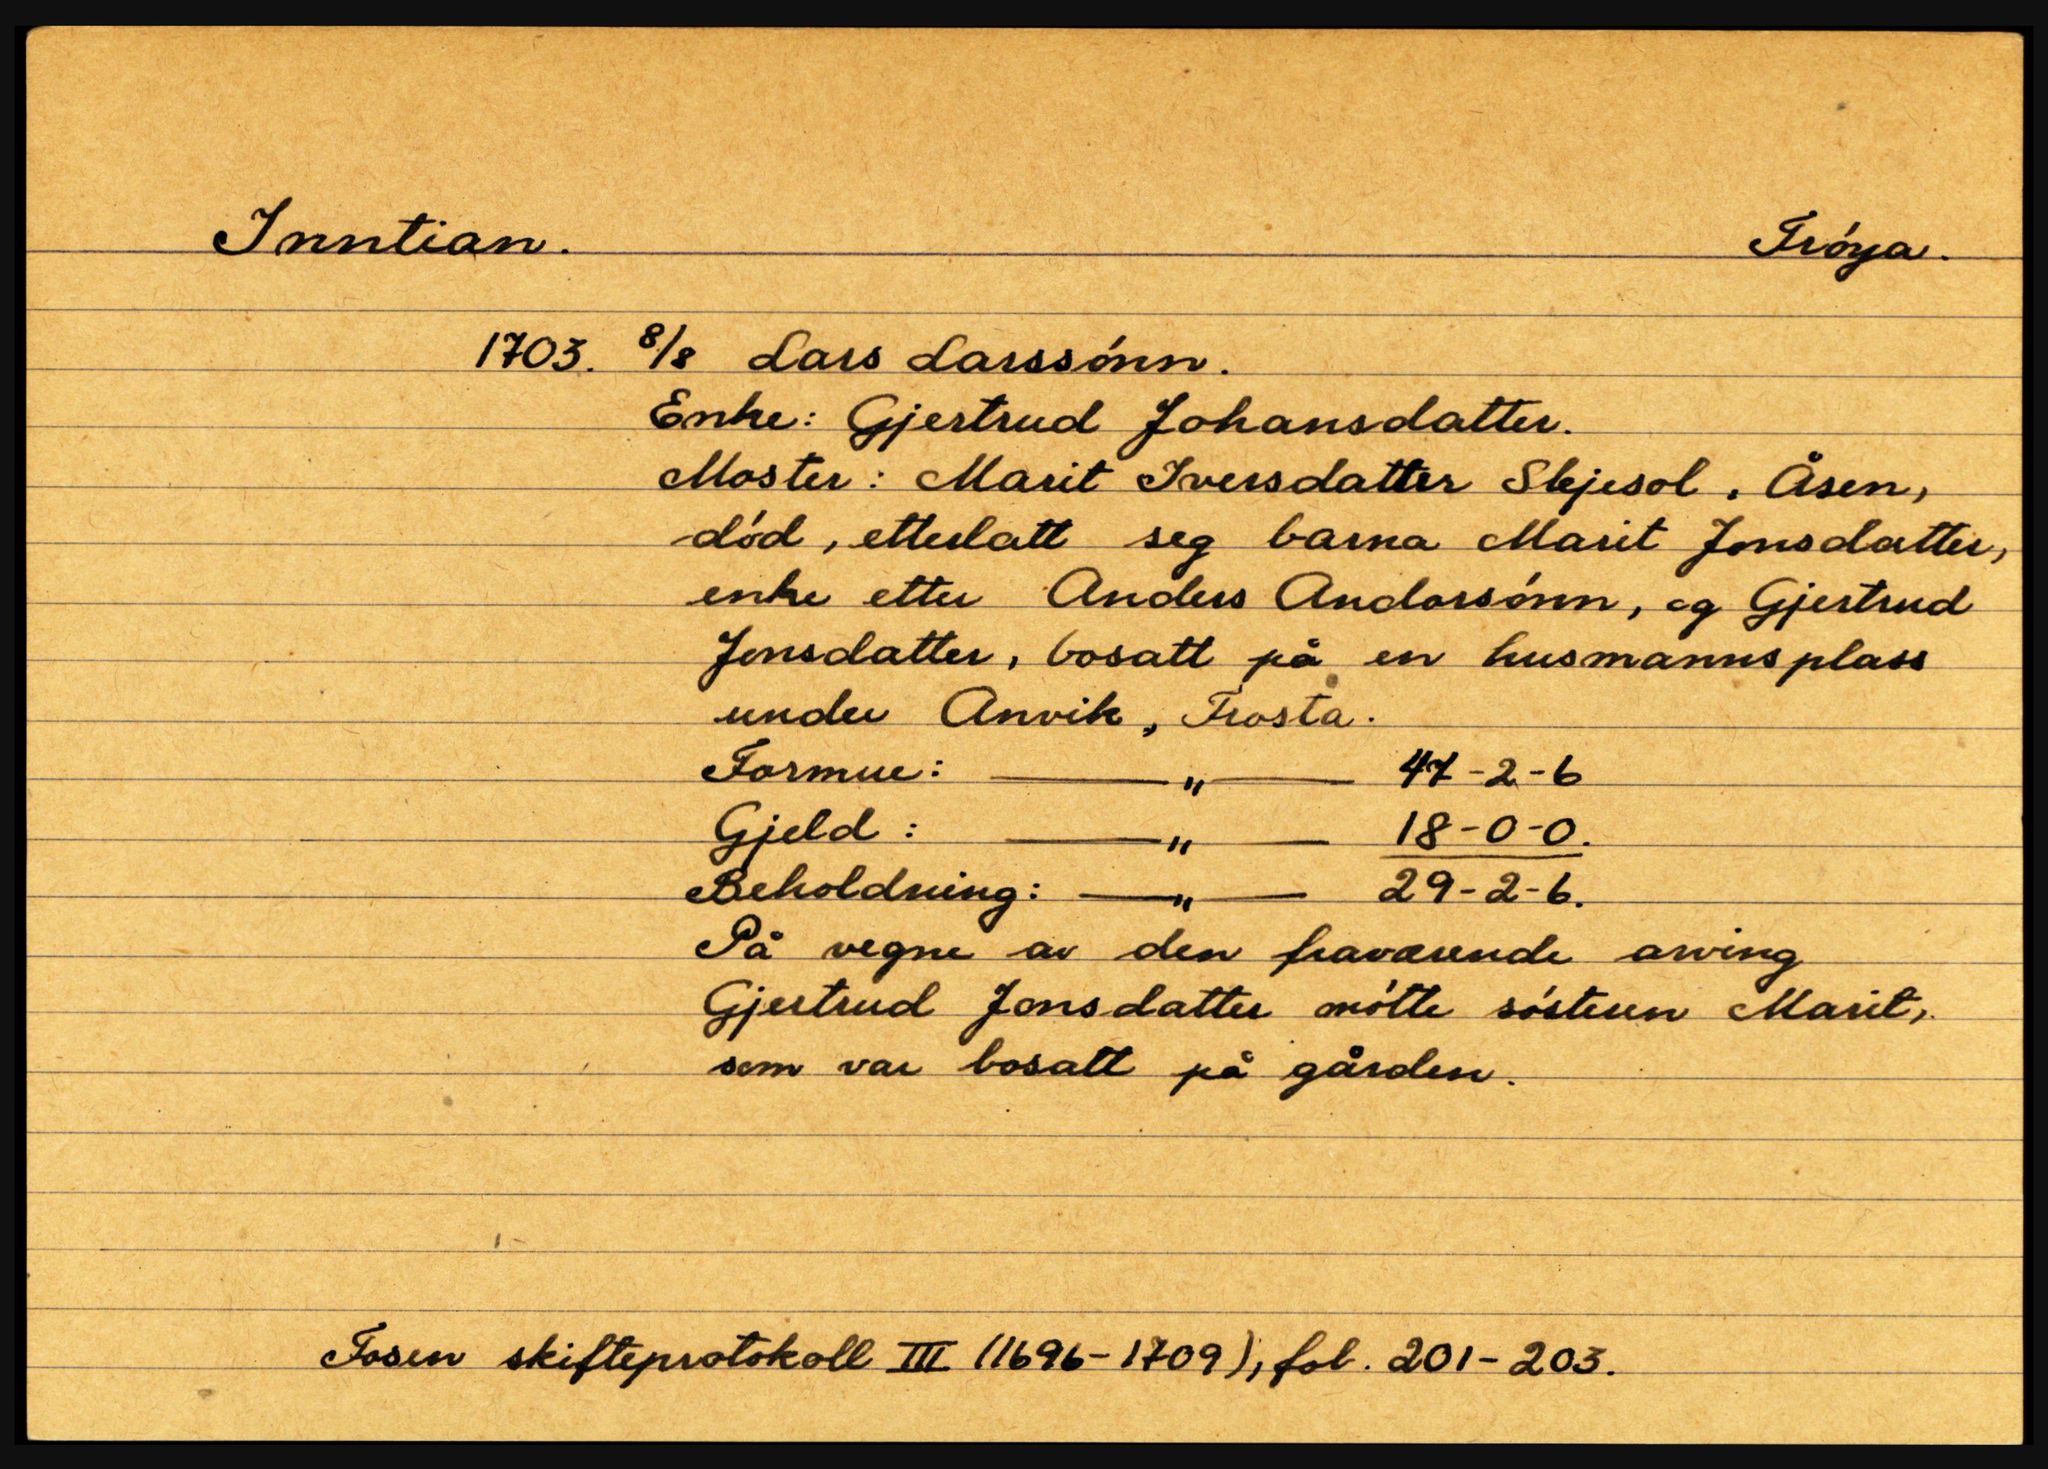 Inntian. Frøya.
1703. 8/8 Lars Larssønn.
Enke: Gjertrud Johansdatter.
Moster: Marit Iversdatter Skjesol, Åsen,
død, etterlatt seg barna Marit Jonsdatter,
enke etter Anders Andorsønn, og Gjertrud
Jonsdatter, bosatt på en husmannsplass
under Anvik, Frosta.
Formue: —— „ —— 47-2-6
Gjeld: —— „ —— 18-0-0.
Beholdning: —— „ —— 29-2-6.
På vegne av den fraværende arving
Gjertrud Jonsdatter møtte søsteren Marit,
som var bosatt på gården.
Fosen skifteprotokoll III (1696-1709), fol. 201-203.